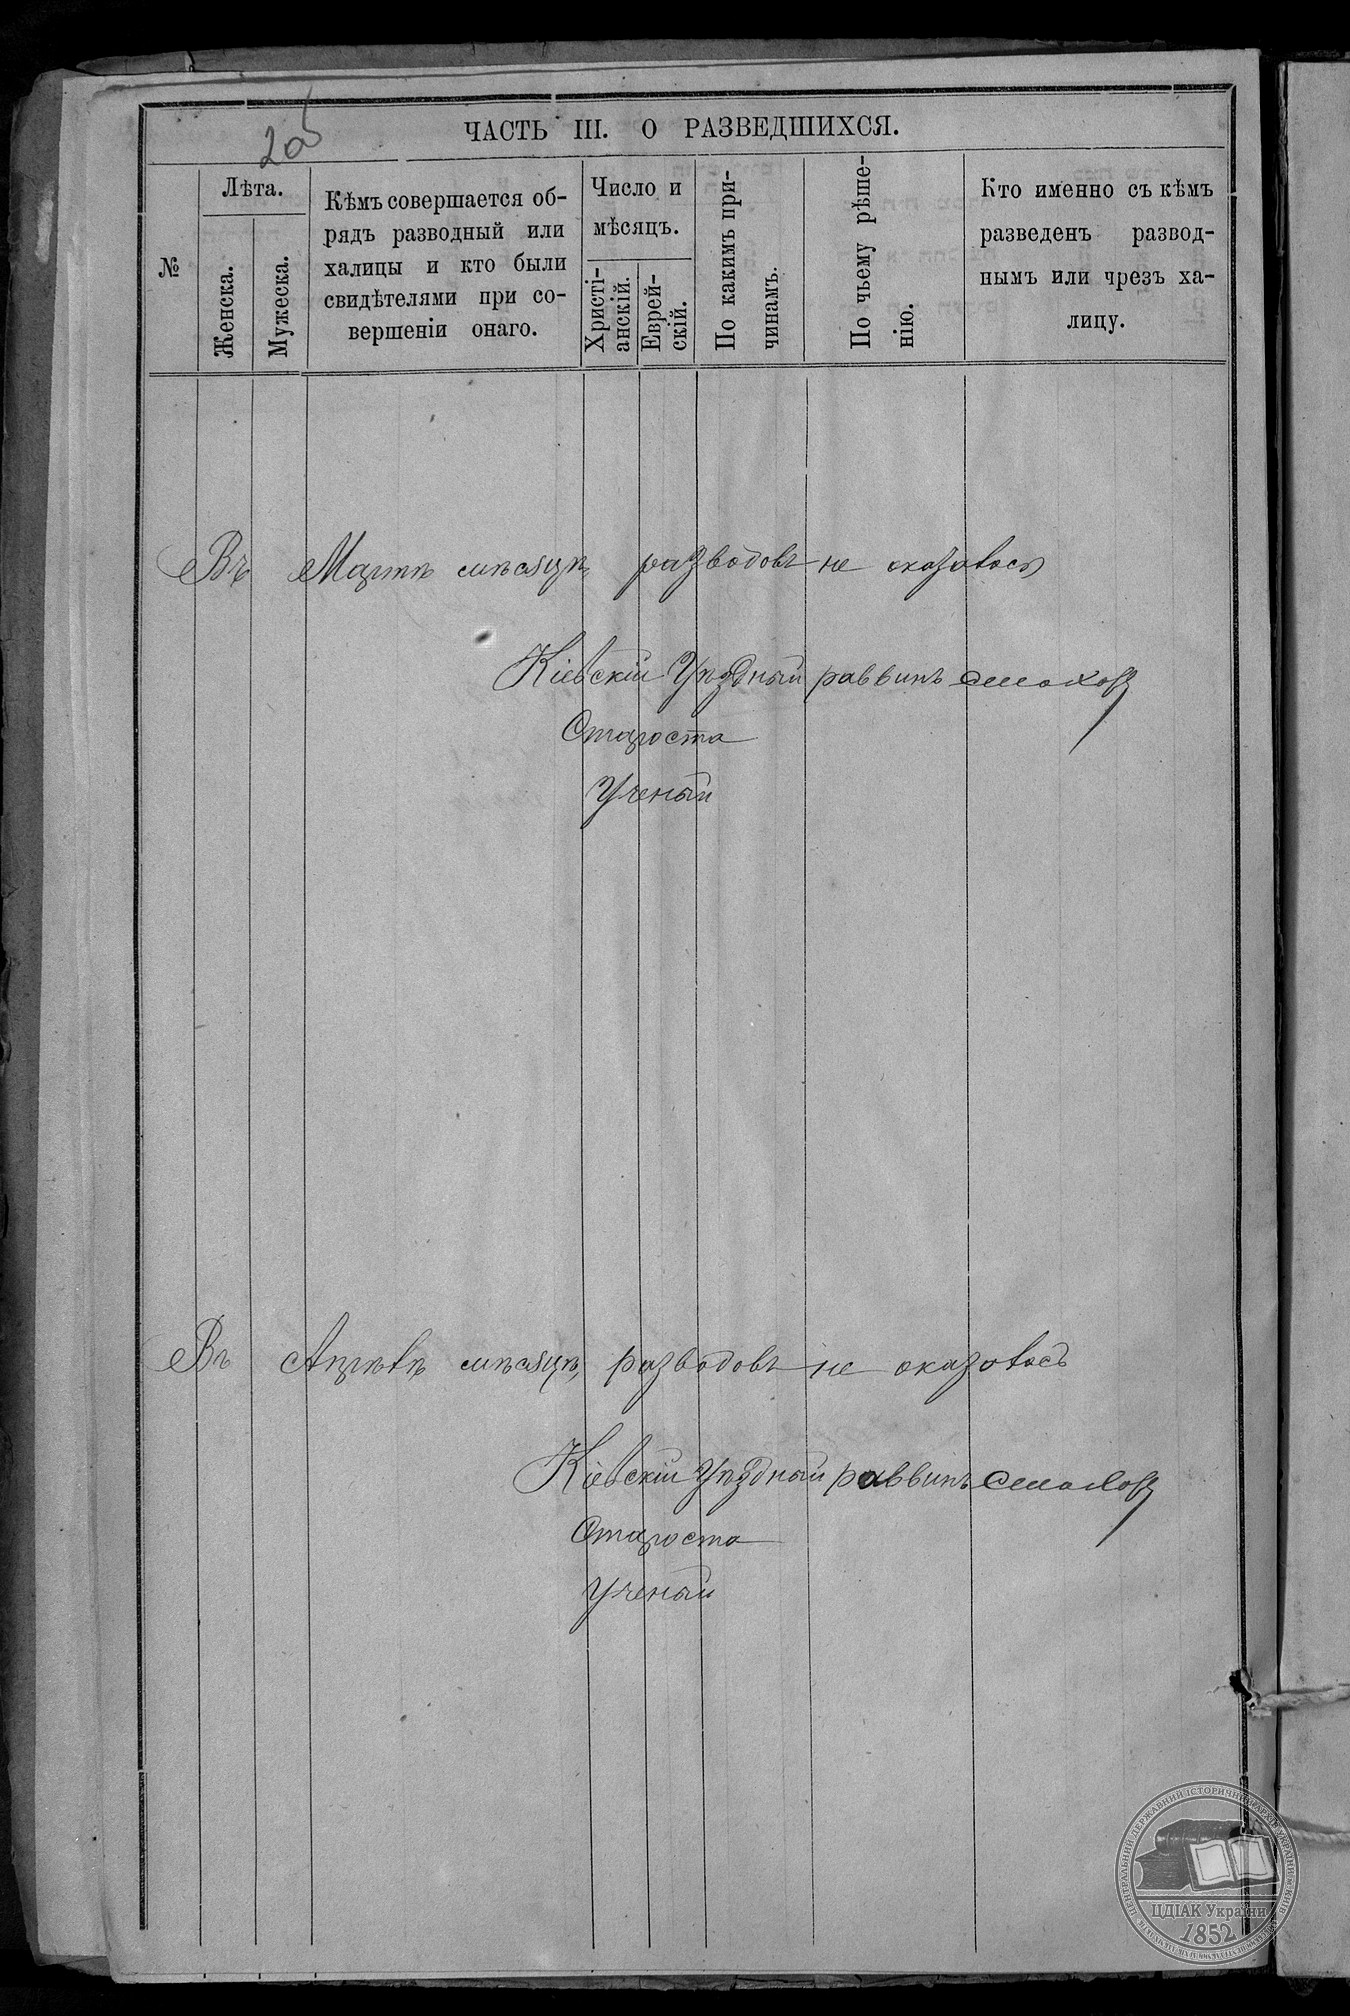 2об
ЧАСТЬ III. О РАЗВЕДШИХСЯ.
№
Лѣта.
Женска.
Мужеска.
Кѣмъ совершается об-
рядъ разводный или
халицы и кто были
свидѣтелями при со-
вершеніи онаго.
Число и
мѣсяцъ.
Христі-
анскій.
Еврей-
скій.
По какимъ при-
чинамъ.
По чьему рѣше-
нію.
Кто именно съ кѣмъ
разведенъ развод-
нымъ или чрезъ ха-
лицу.
Въ Мартѣ мѣсяцѣ разводовъ не оказалось
Кіевскій Уѣздный раввинъ
Староста
Ученый
Въ Апрѣлѣ мѣсяцѣ, разводовъ не оказалось
Кіевскій Уѣздный раввинъ
Староста
Ученый
ЦЕНТРАЛЬНИЙ ДЕРЖАВНИЙ ІСТОРИЧНИЙ АРХІВ УКРАЇНИ, М. КИЇВ
ЦДІАК України
1852